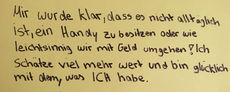 Mir wurde klar, dass es nicht alltäglich
ist, ein Handy zu besitzen oder wie
leichtsinnig wir mit Geld umgehen! Ich
schätze viel mehr wert und bin glücklich
mit dem, was ICH habe.